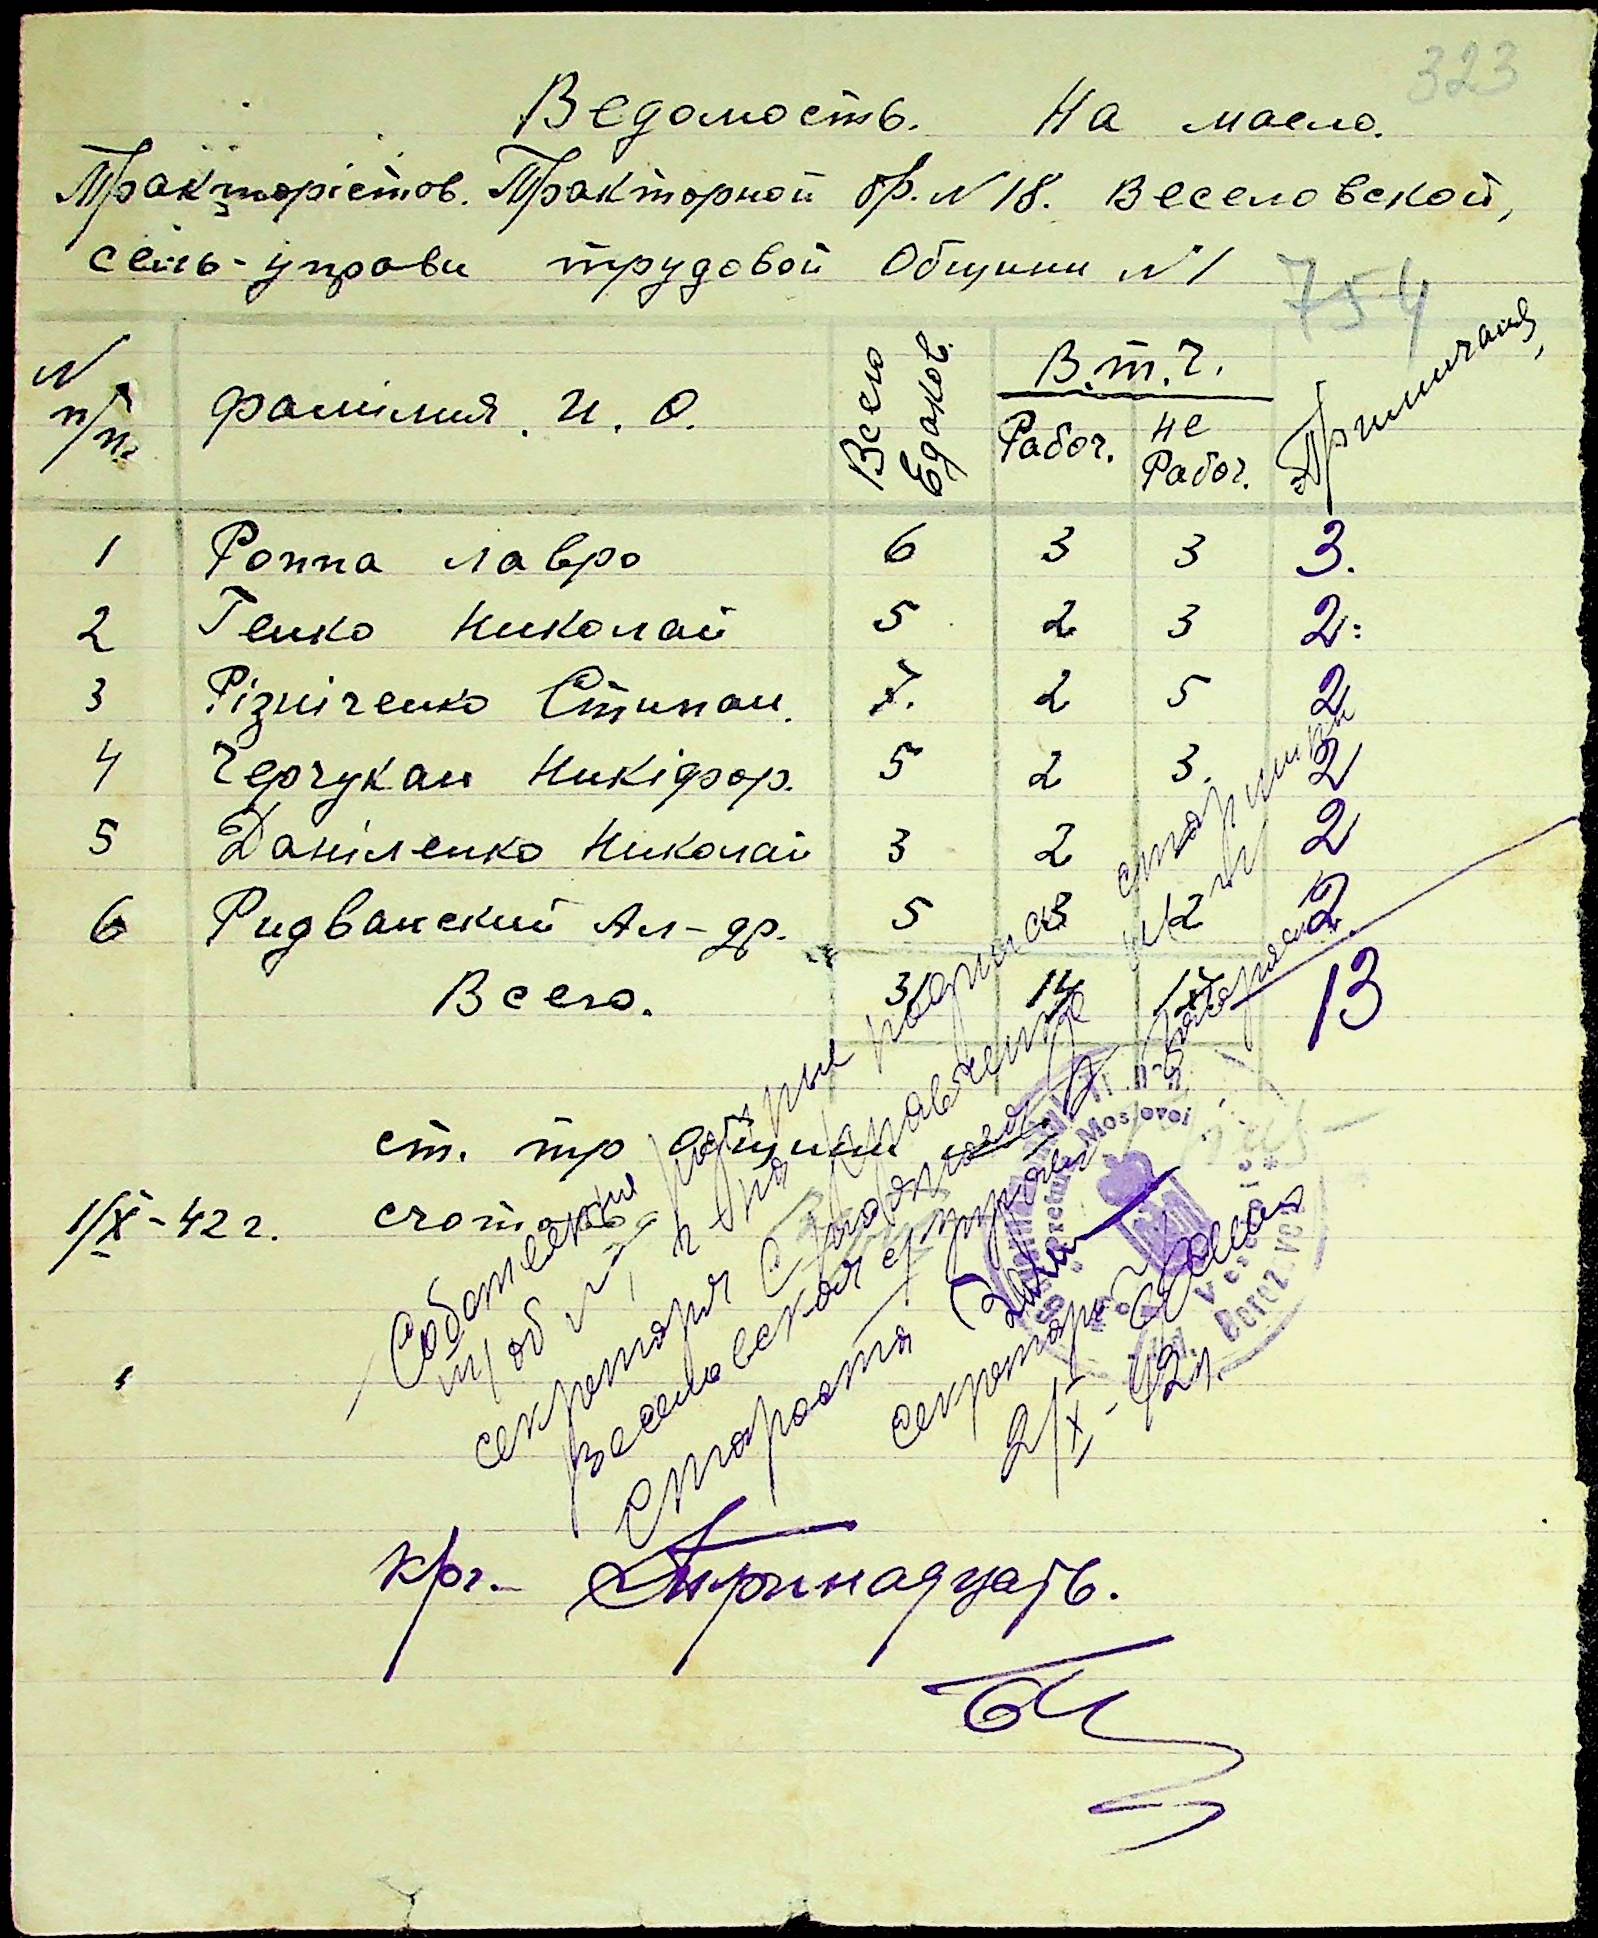 323
Ведомость. На масло.
Тракторістов. Тракторной бр. N 18. Веселовской,
сель-управи трудовой Общини N 1
754
N п/п. фамілия. И. О. Всего Едоков. В.т.ч. Рабоч. не Рабоч. Примичания
1 Роппа лавро 6 3 3 3.
2 Генко Николай 5 2 3 2:
3 Різніченко Стипан. 7. 2 5 2
4 Черчукан Никіфор. 5 2 3. 2
5 Даніленко Николай 3 2 2
6 Ридванский Ал-др. 5 3 2 2.
Всего. 31 14 17 13
ст. тр общини
1/IX-42 г. счотовод
Собственные подписи старшины
тр/об и на
секретаря
Веселовская с/управа
Староста
секретарь
2/IX-42 г.
Mostovoi
Berezovca
кгр. Тринадцать.